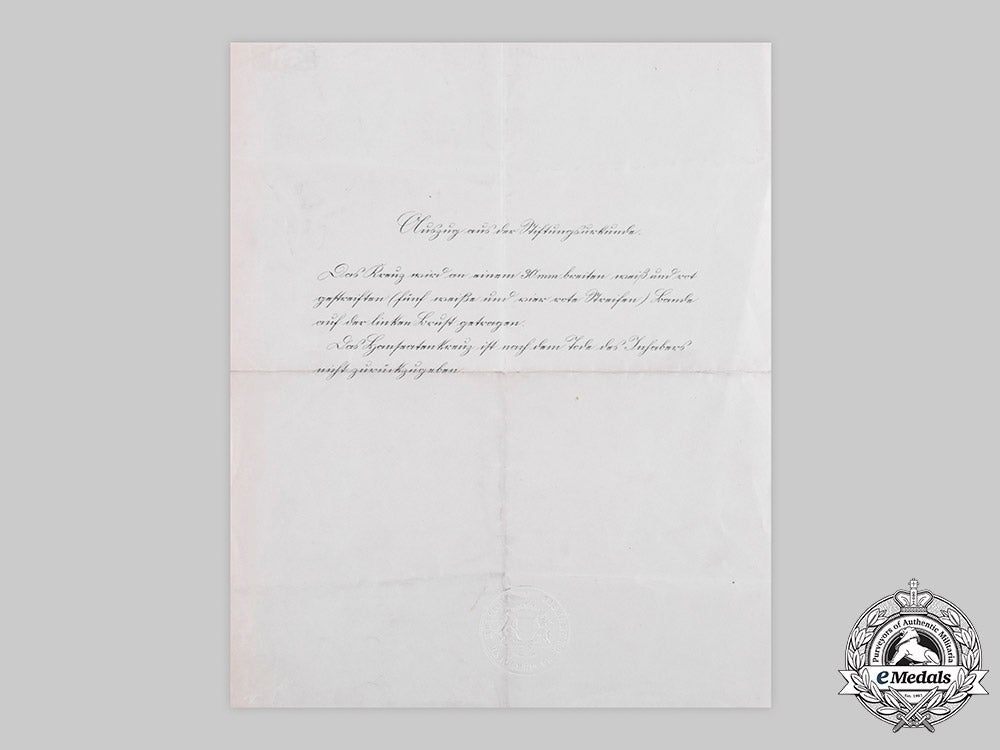 Auszug aus der Stiftungsurkunde.
Das Kreuz wird an einem 30mm breiten weiß und rot
gestreiften (fünf weiße und vier rote Streifen) Bande
auf der linken Brust getragen.
Das Hanseatenkreuz ist nach dem Tode des Inhabers
nicht zurückzugeben.
Purveyors of Authentic Militaria
eMedals
Est. 1967